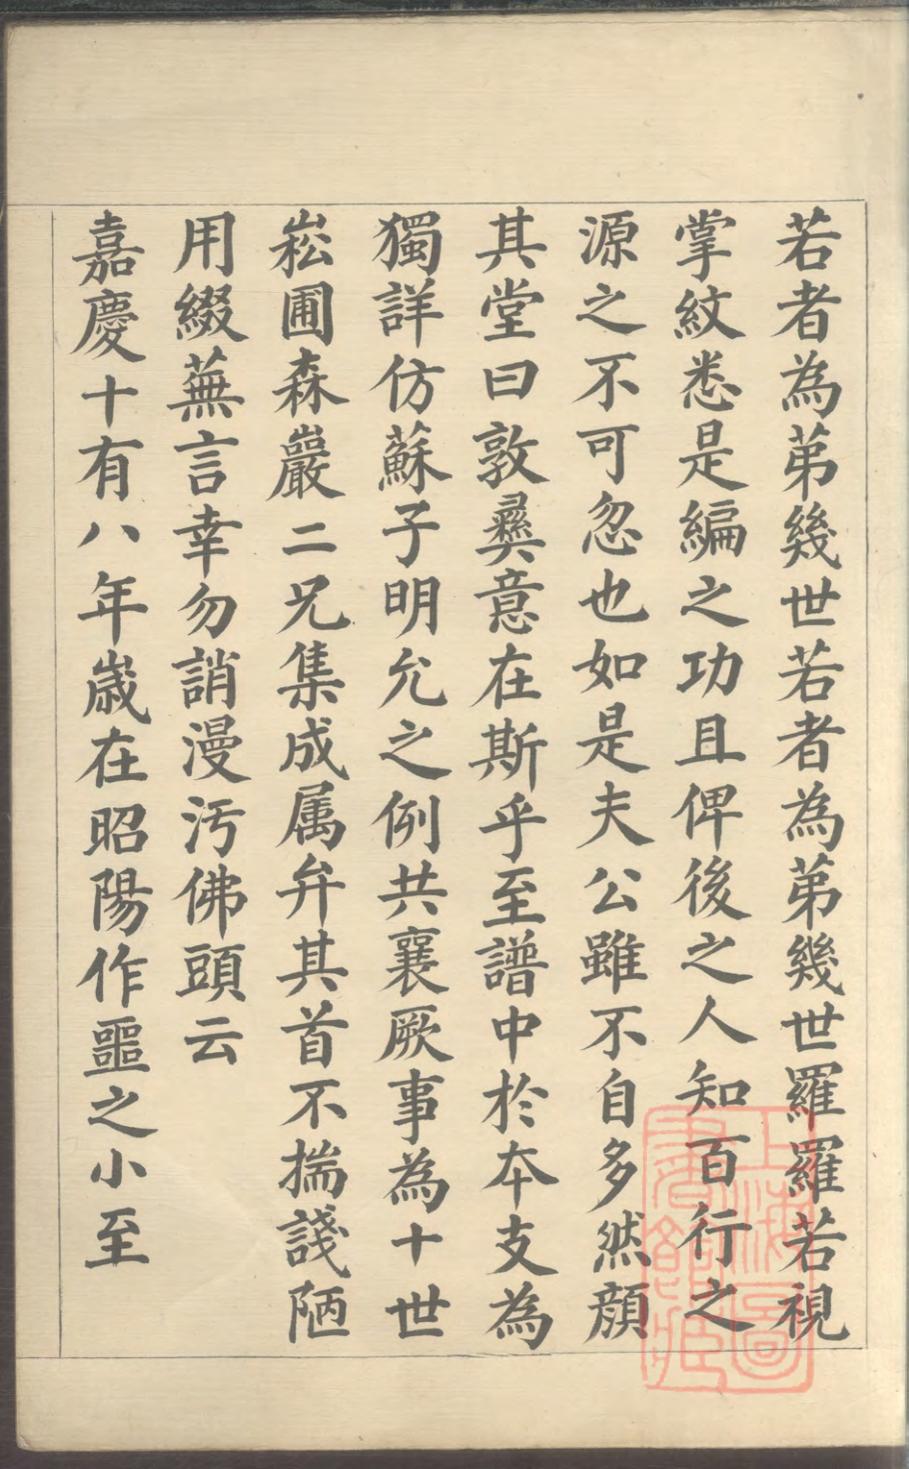 若者為苐幾世若者為苐幾世羅羅若視
掌紋悉是編之功且俾後之人知百行之
源之不可忽也如是夫公雖不自多然顏
其堂曰敦彞意在斯乎至譜中於本支為
獨詳仿蘇子明允之例共襄厥事為十世
崧圃森巖二兄集成属弁其首不揣諓陋
用綴蕪言幸勿誚漫汚佛頭云
嘉慶十有八年歲在昭陽作噩之小至
上海圖
書館藏